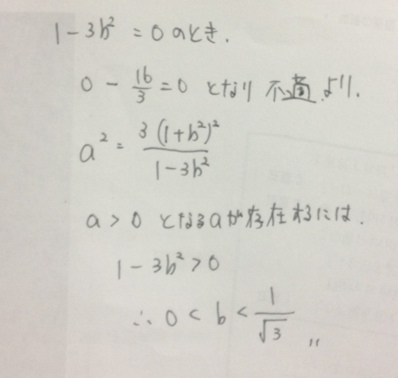 1-3b² = 0 のとき.
0 - 16/3 = 0 となり 不適 より.
a² = 3(1+b²)²/(1-3b²)
a > 0 となるaが存在するには.
1-3b² > 0
∴ 0 < b < 1/√3 〃